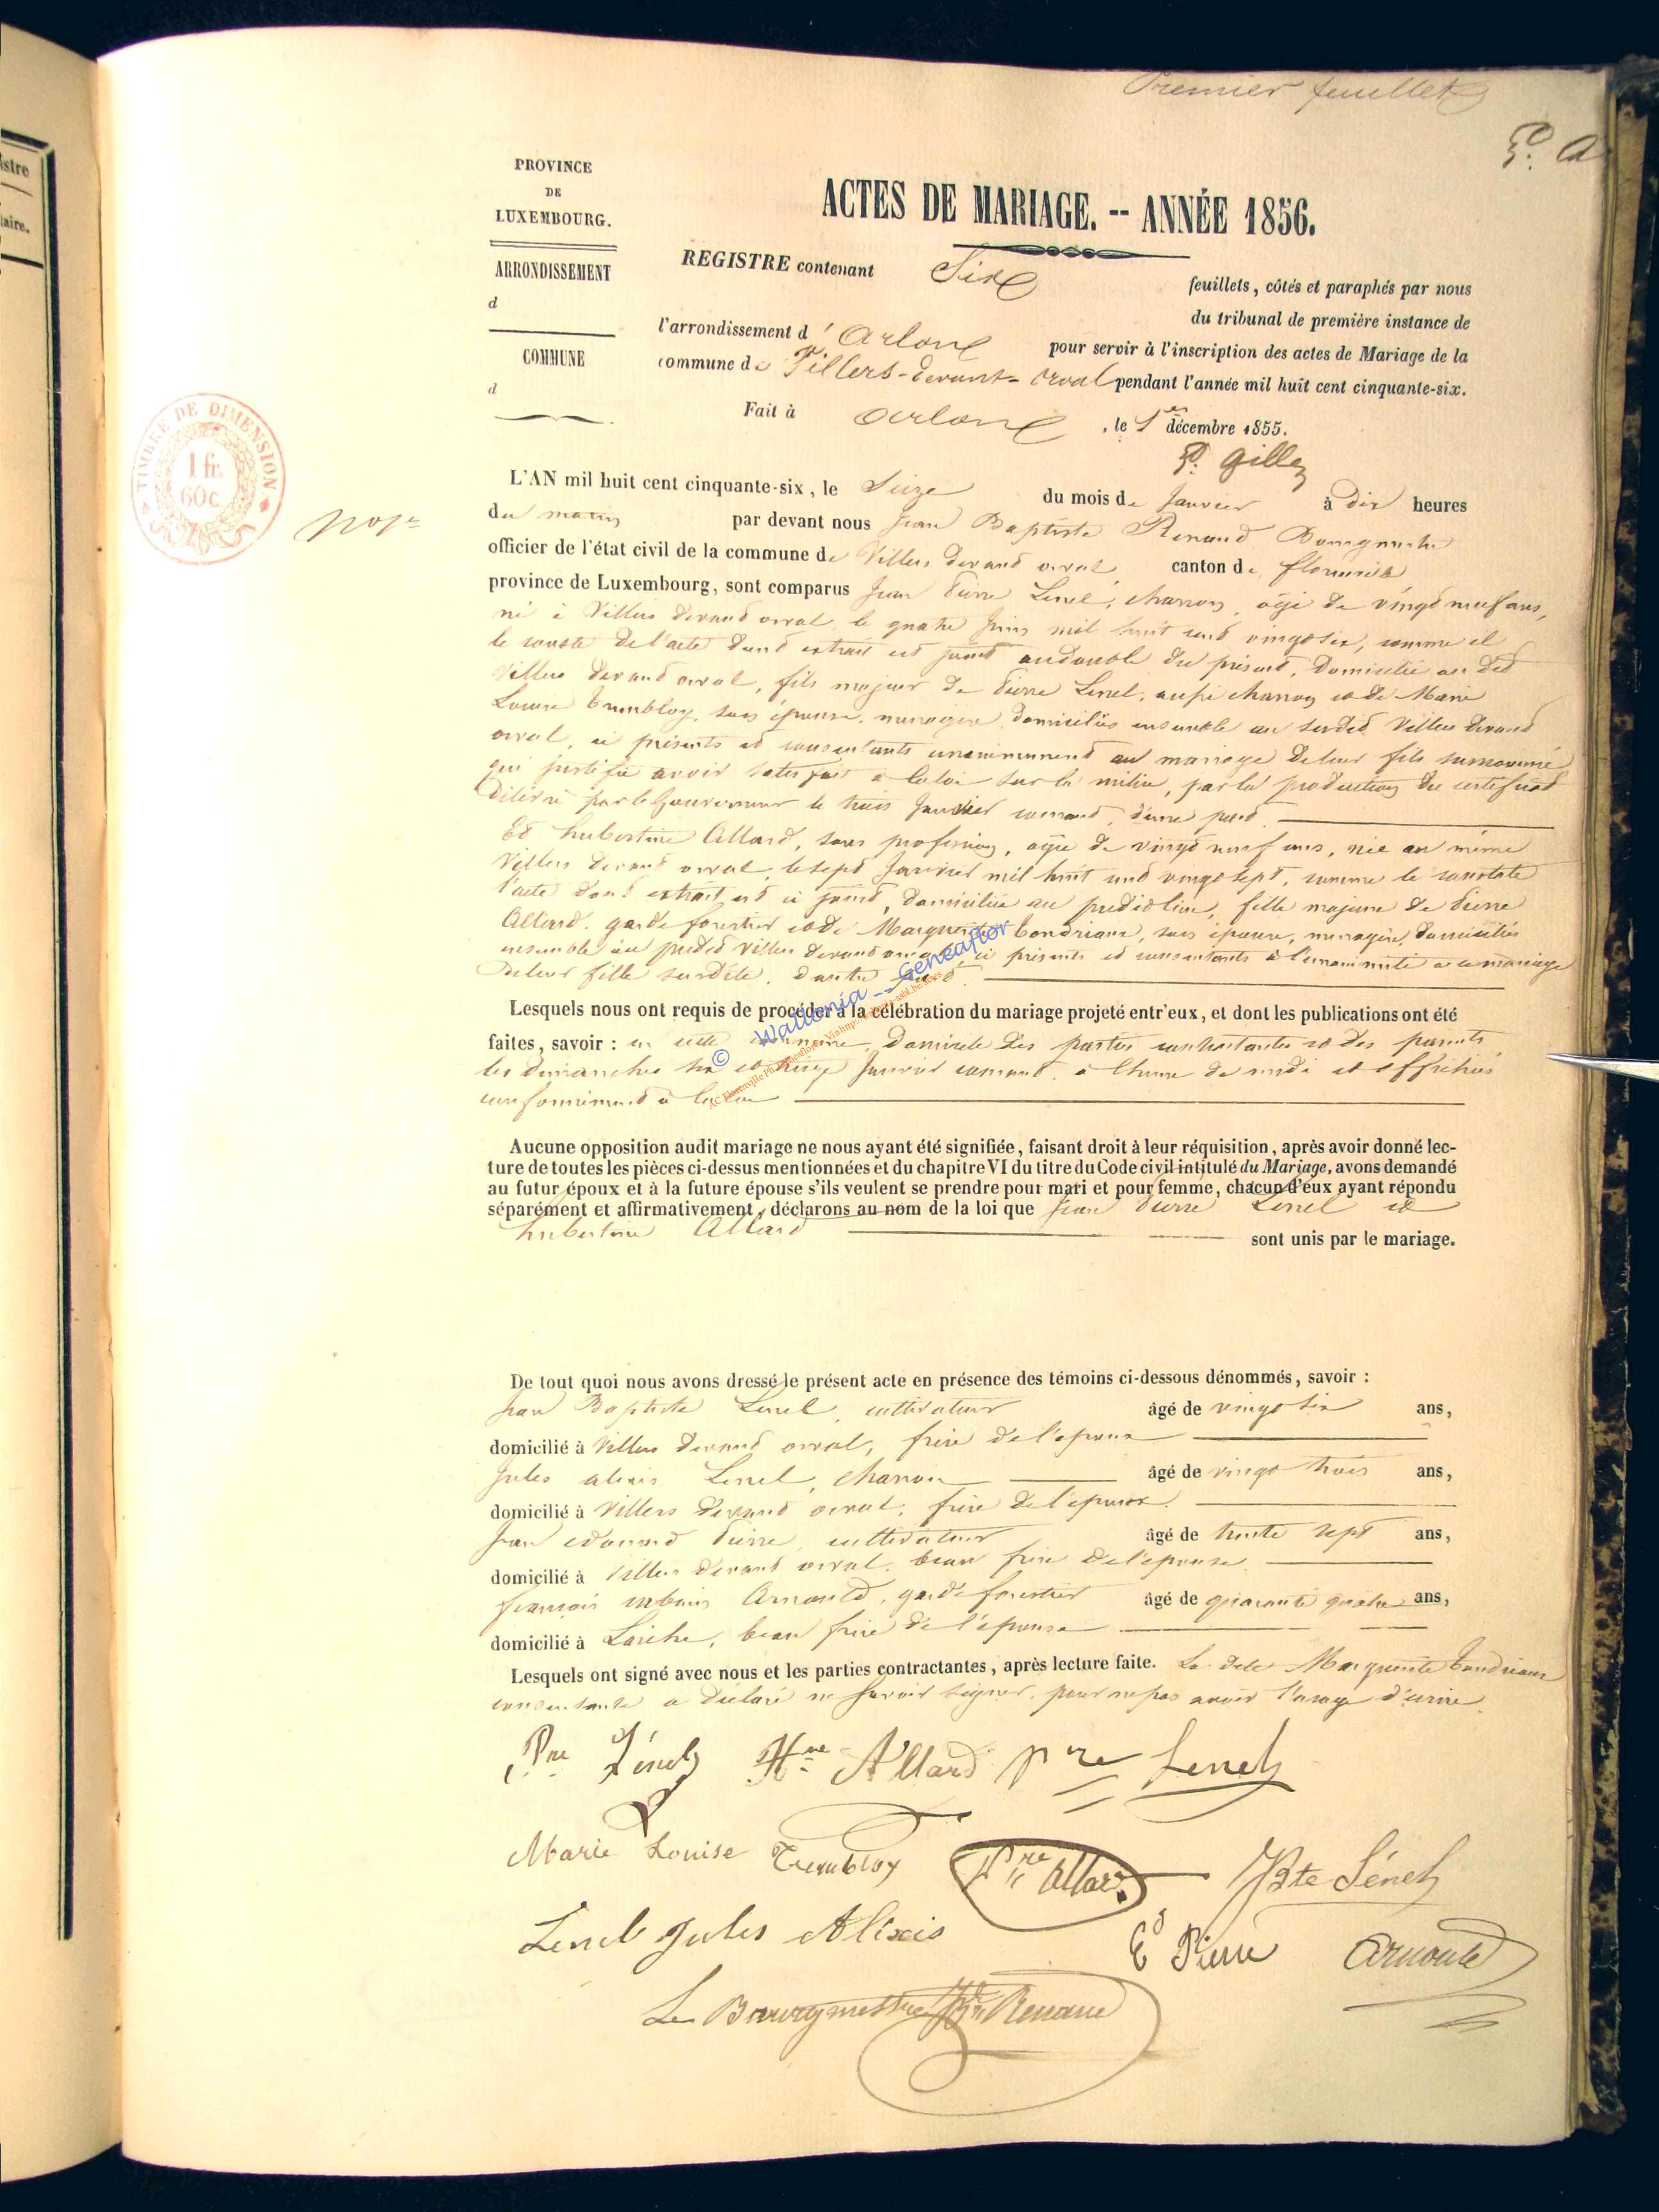 Premier feuillet
PROVINCE
DE
LUXEMBOURG.
ACTES DE MARIAGE. -- ANNÉE 1856.
ARRONDISSEMENT
d
COMMUNE
d
REGISTRE contenant Six feuillets, côtés et paraphés par nous
du tribunal de première instance de
l'arrondissement d'Arlon pour servir à l'inscription des actes de Mariage de la
commune de Villers-devant-orval pendant l'année mil huit cent cinquante-six.
Fait à arlon, le 1er décembre 1855.
TIMBRE DE DIMENSION
1 fr.
60 c.
istre
laire.
L'AN mil huit cent cinquante-six, le Seize du mois de Janvier à dix heures
du matin par devant nous Jean Baptiste Renaud Bourgmestre
officier de l'état civil de la commune de Villers devand orval canton de florenville
province de Luxembourg, sont comparus Jean Pierre Lenel, charron, âgé de vingd neuf ans,
né à Villers devand orval le quatre Juin mil huit cend vingd six, comme il
le conste de l'acte dond extrait est joint au double du présend, domicilié au did
Villers devand orval, fils majeur de Pierre Lenel, aussi charron et de Marie
Louise Trembloy, son épouse, menagère, domiciliés ensemble au susdid Villers devand
orval, ici présents et consentants unanimemend au mariage de leur fils surnommé
qui justifie avoir satisfait à la loi sur la milice, par la production du certificat
délivré par le Gouverneur le trois Janvier courand, d'une pard.
Et hubertine Allard, sans profession, agée de vingd neuf ans, née au même
Villers devand orval, le sept Janvier mil huit cend vingd sept, comme le constate
l'acte dond extrait est ci joind, domiciliée au predid lieu, fille majeure de Pierre
Allard, garde forestier et de Marguerite Tondriaux, son épouse, menagère, domiciliés
ensemble au predid Villers devand orval, ici présents et consentants à l'unanimité à ce mariage
de leur fille susdite, d'autre pard.
© Wallonia -- Geneaflor
Lesquels nous ont requis de procéder à la célébration du mariage projeté entr'eux, et dont les publications ont été
faites, savoir : en cette commune, domicile des parties contractantes et des parents,
les dimanches six et treize Janvier courand, à l'heure de midi et affichées
conformémend à la loi
Aucune opposition audit mariage ne nous ayant été signifiée, faisant droit à leur réquisition, après avoir donné lec-
ture de toutes les pièces ci-dessus mentionnées et du chapitre VI du titre du Code civil intitulé du Mariage, avons demandé
au futur époux et à la future épouse s'ils veulent se prendre pour mari et pour femme, chacun d'eux ayant répondu
séparément et affirmativement, déclarons au nom de la loi que Jean Pierre Lenel et
hubertine Allard sont unis par le mariage.
De tout quoi nous avons dressé le présent acte en présence des témoins ci-dessous dénommés, savoir :
Jean Baptiste Lenel, cultivateur âgé de vingt six ans,
domicilié à Villers devand orval, frère de l'époux
Jules alexis Lenel, charron âgé de vingt trois ans,
domicilié à Villers devand orval, frère de l'époux.
Jean edouard Pierre, cultivateur âgé de trente sept ans,
domicilié à Villers devand orval, beau frère de l'épouse
françois Arnould, garde forestier âgé de quarante quatre ans,
domicilié à Laiche, beau frère de l'épouse
Lesquels ont signé avec nous et les parties contractantes, après lecture faite. La dite Marguerite Tondriaux
consentante a déclaré ne savoir signer, pour ne pas avoir l'usage d'écrire.
Pre Lénel Hne Allard pre Lenel
Marie Louise Trembloy Pre Allard JBte Lénel
Lenel Jules Alixis Ed Pierre Arnould
Le Bourgmestre JBte Renaud